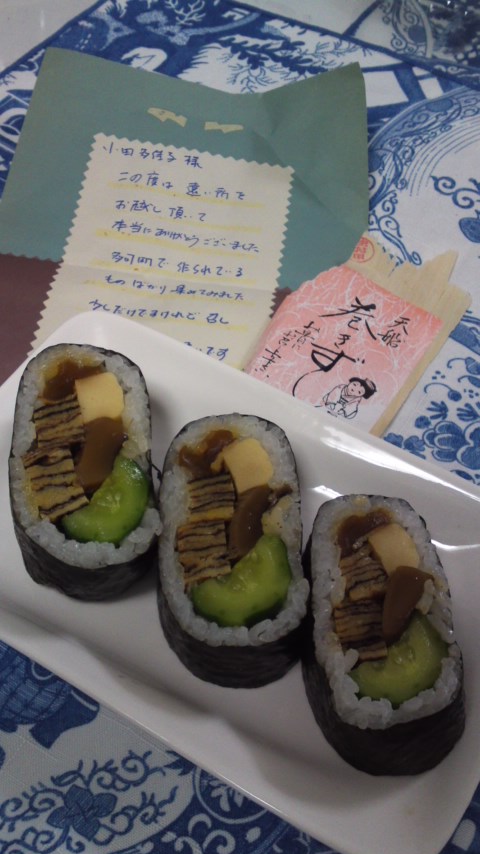 小田多佳子 様
この度は 遠い所を
お越し頂いて
本当にありがとうございました
多可町で 作られている
ものばかり 集めてみました
少しだけですけれど 召し
いです
天船
巻きずし